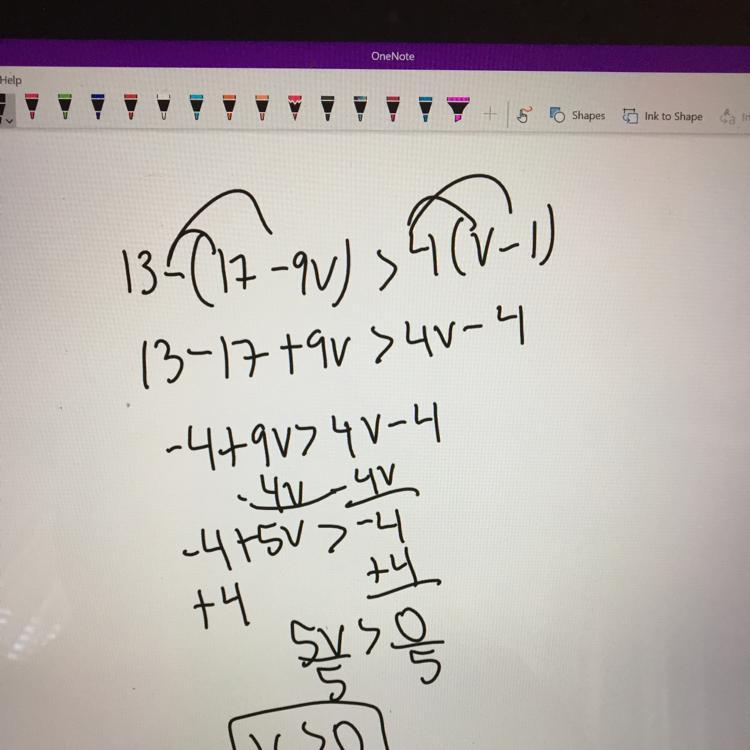 OneNote
Help
Shapes Ink to Shape
13-(17-9v) > 4(v-1)
13-17+9v > 4v-4
-4+9v > 4v-4
-4v -4v
-4+5v > -4
+4 +4
5v/5 > 0/5
v > 0